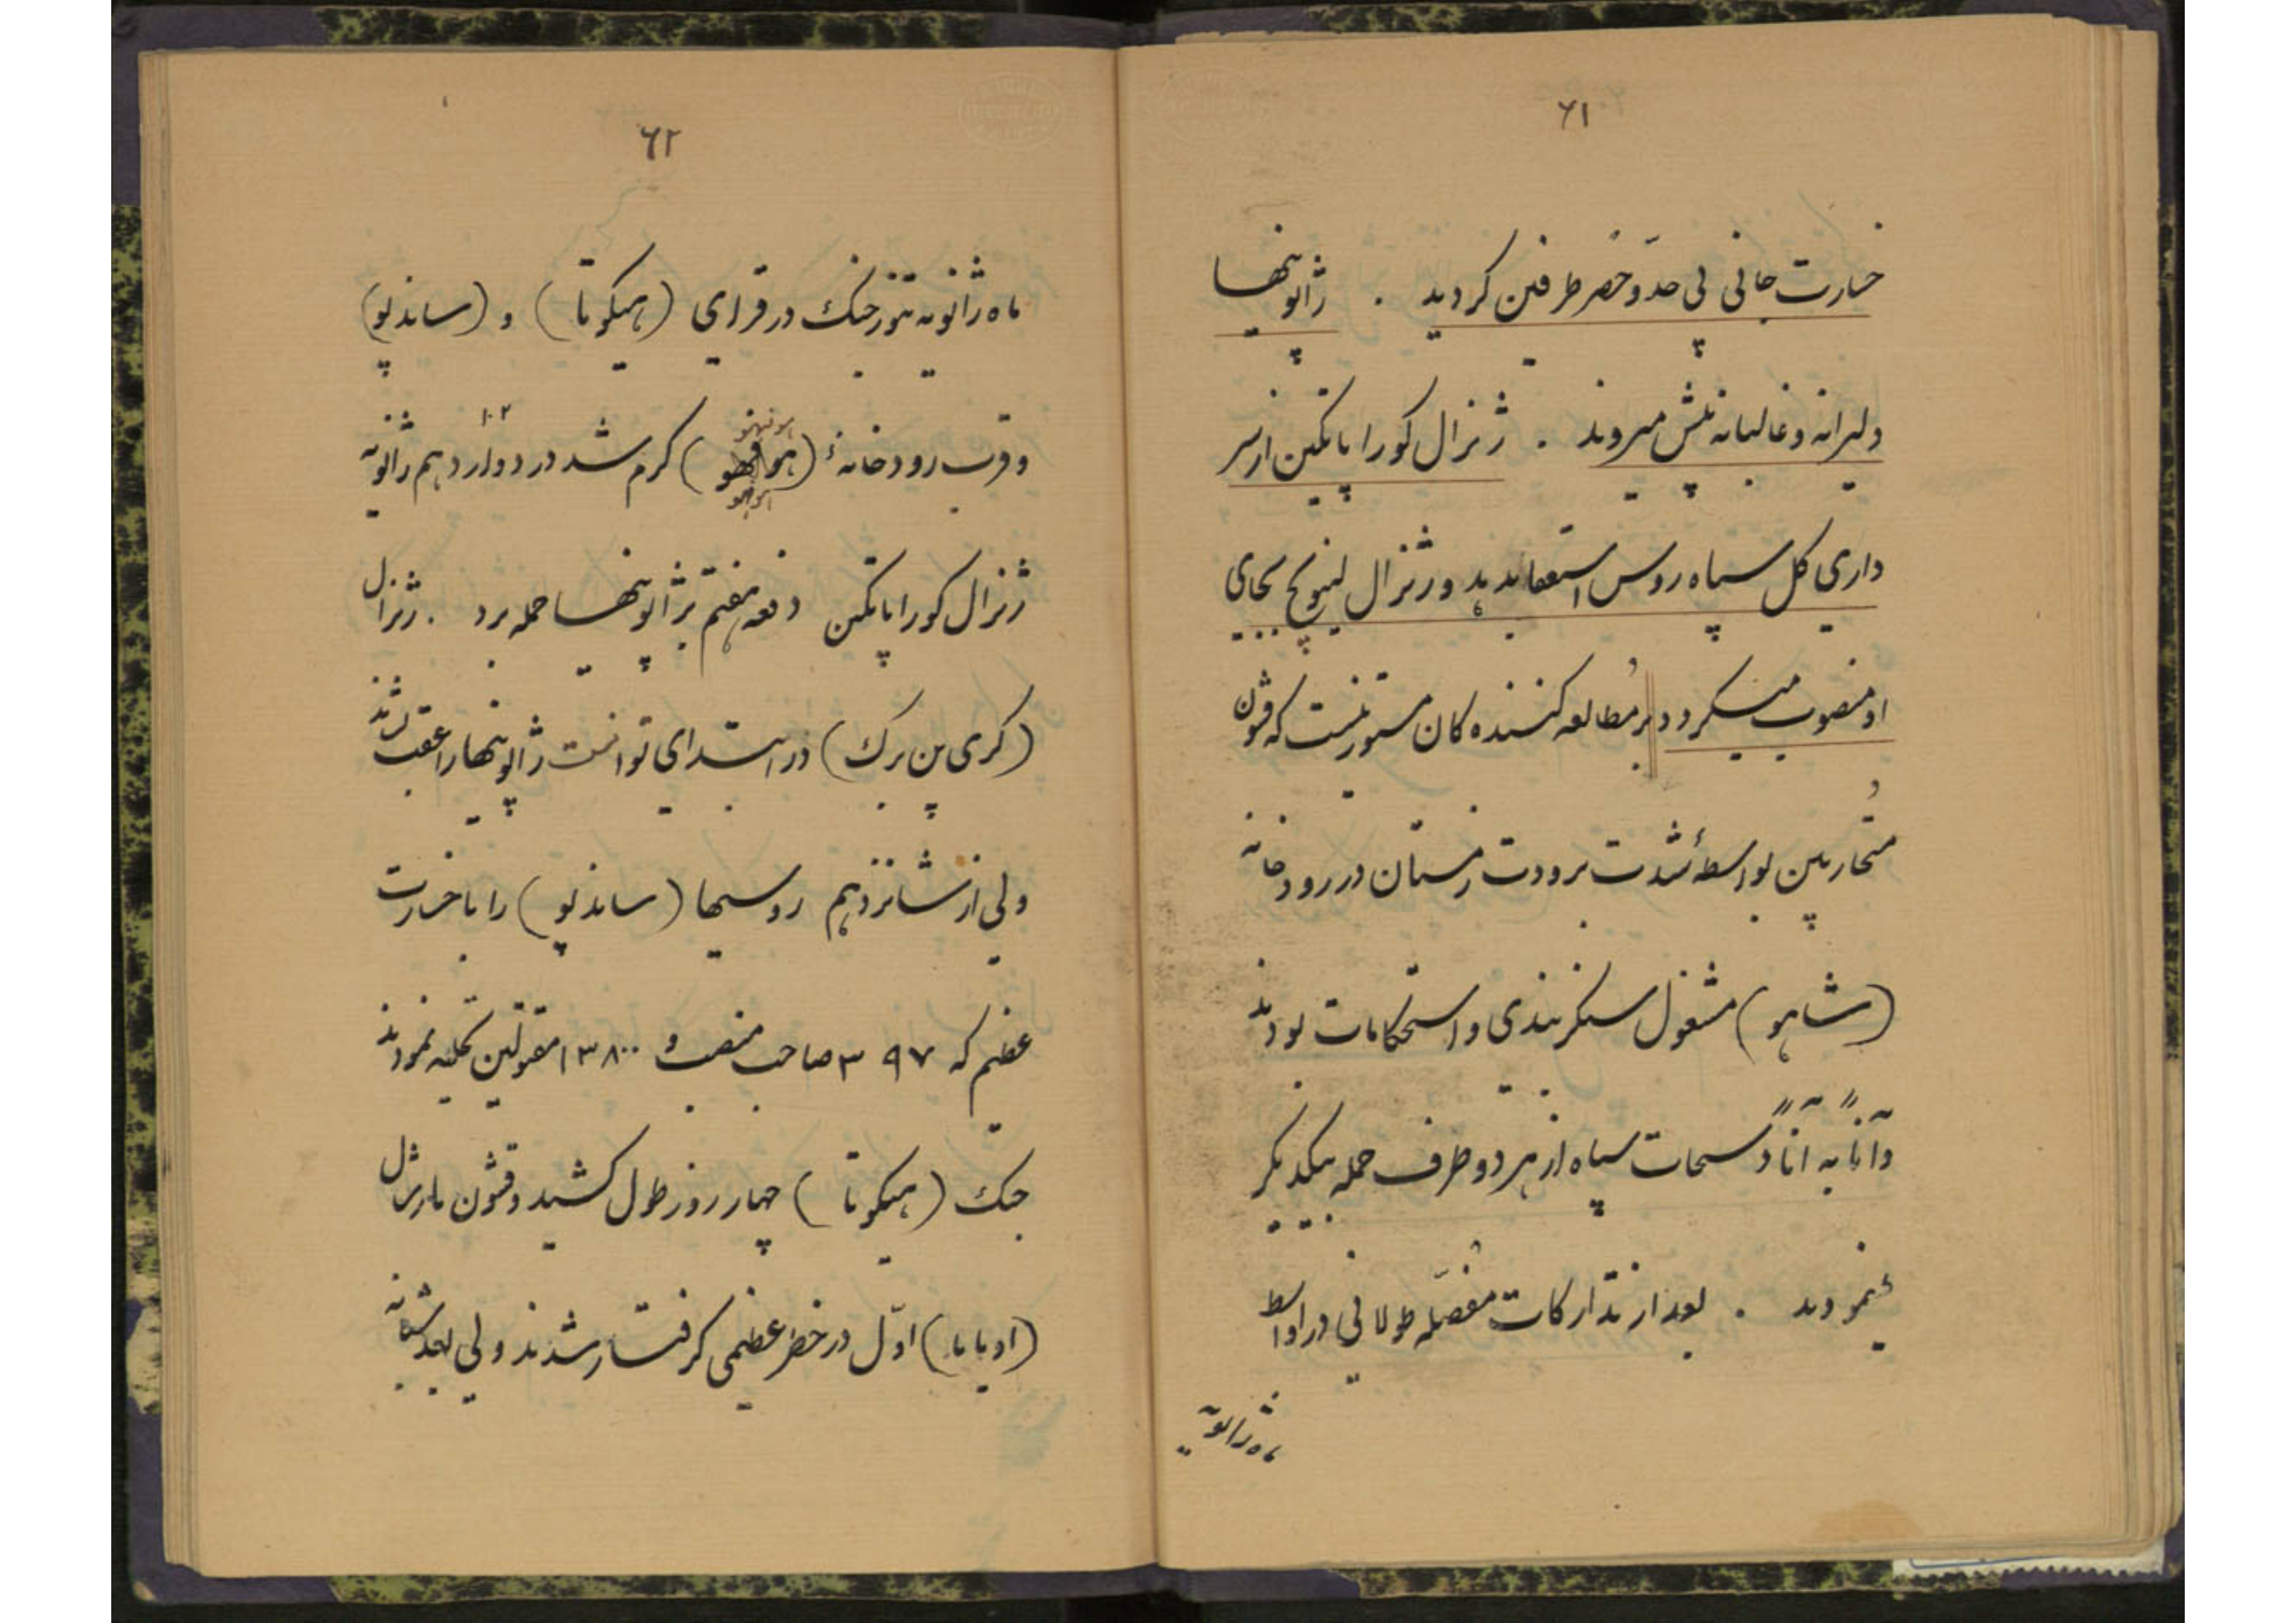 ۶۱
خسارت جانی بی حدّ و حصر طرفین کردید . ژاپونیها
دلیرانه و غالبانه پیش میروند . ژنرال کوراپاتکین از سر
داری کل سپاه روس استعفا بدهد و ژنرال لینیویچ بجای
او منصوب میکردد بر مُطالعه کننده کان مستور نیست که قشون
متحاربین بواسطهٔ شدت برودت زمستان در رودخانه
(شاهو) مشغول سنکر بندی و استحکامات بودند
و آناً به آناً دستجات سپاه از هر دو طرف حمله بیکدیکر
مینمودند . بعد از تدارکات مُفصّله طولانی در اواسط
ماه ژانویه
۶۲
ماه ژانویه تنور جنک در قرای (هیکوتا) و (ساندپو)
و قرب رودخانهٔ (هونهو) کرم شد در دوازدهم ژانویه
ژنرال کوراپاتکین دفعه هفتم بژاپونیها حمله برد . ژنرال
(کری پن برک) در ابتدای توانست ژاپونیها را عقب زند
ولی از شانزدهم روسیها (ساندپو) را با خسارت
عظیم که ۳۹۷ صاحب منصب و ۱۳۸۰۰ مقتولین تخلیه نمودند
جنک (هیکوتا) چهار روز طول کشید و قشون مارشال
(اویاما) اوّل در خطر عظیمی کرفتار شدند ولی بعد شبانه